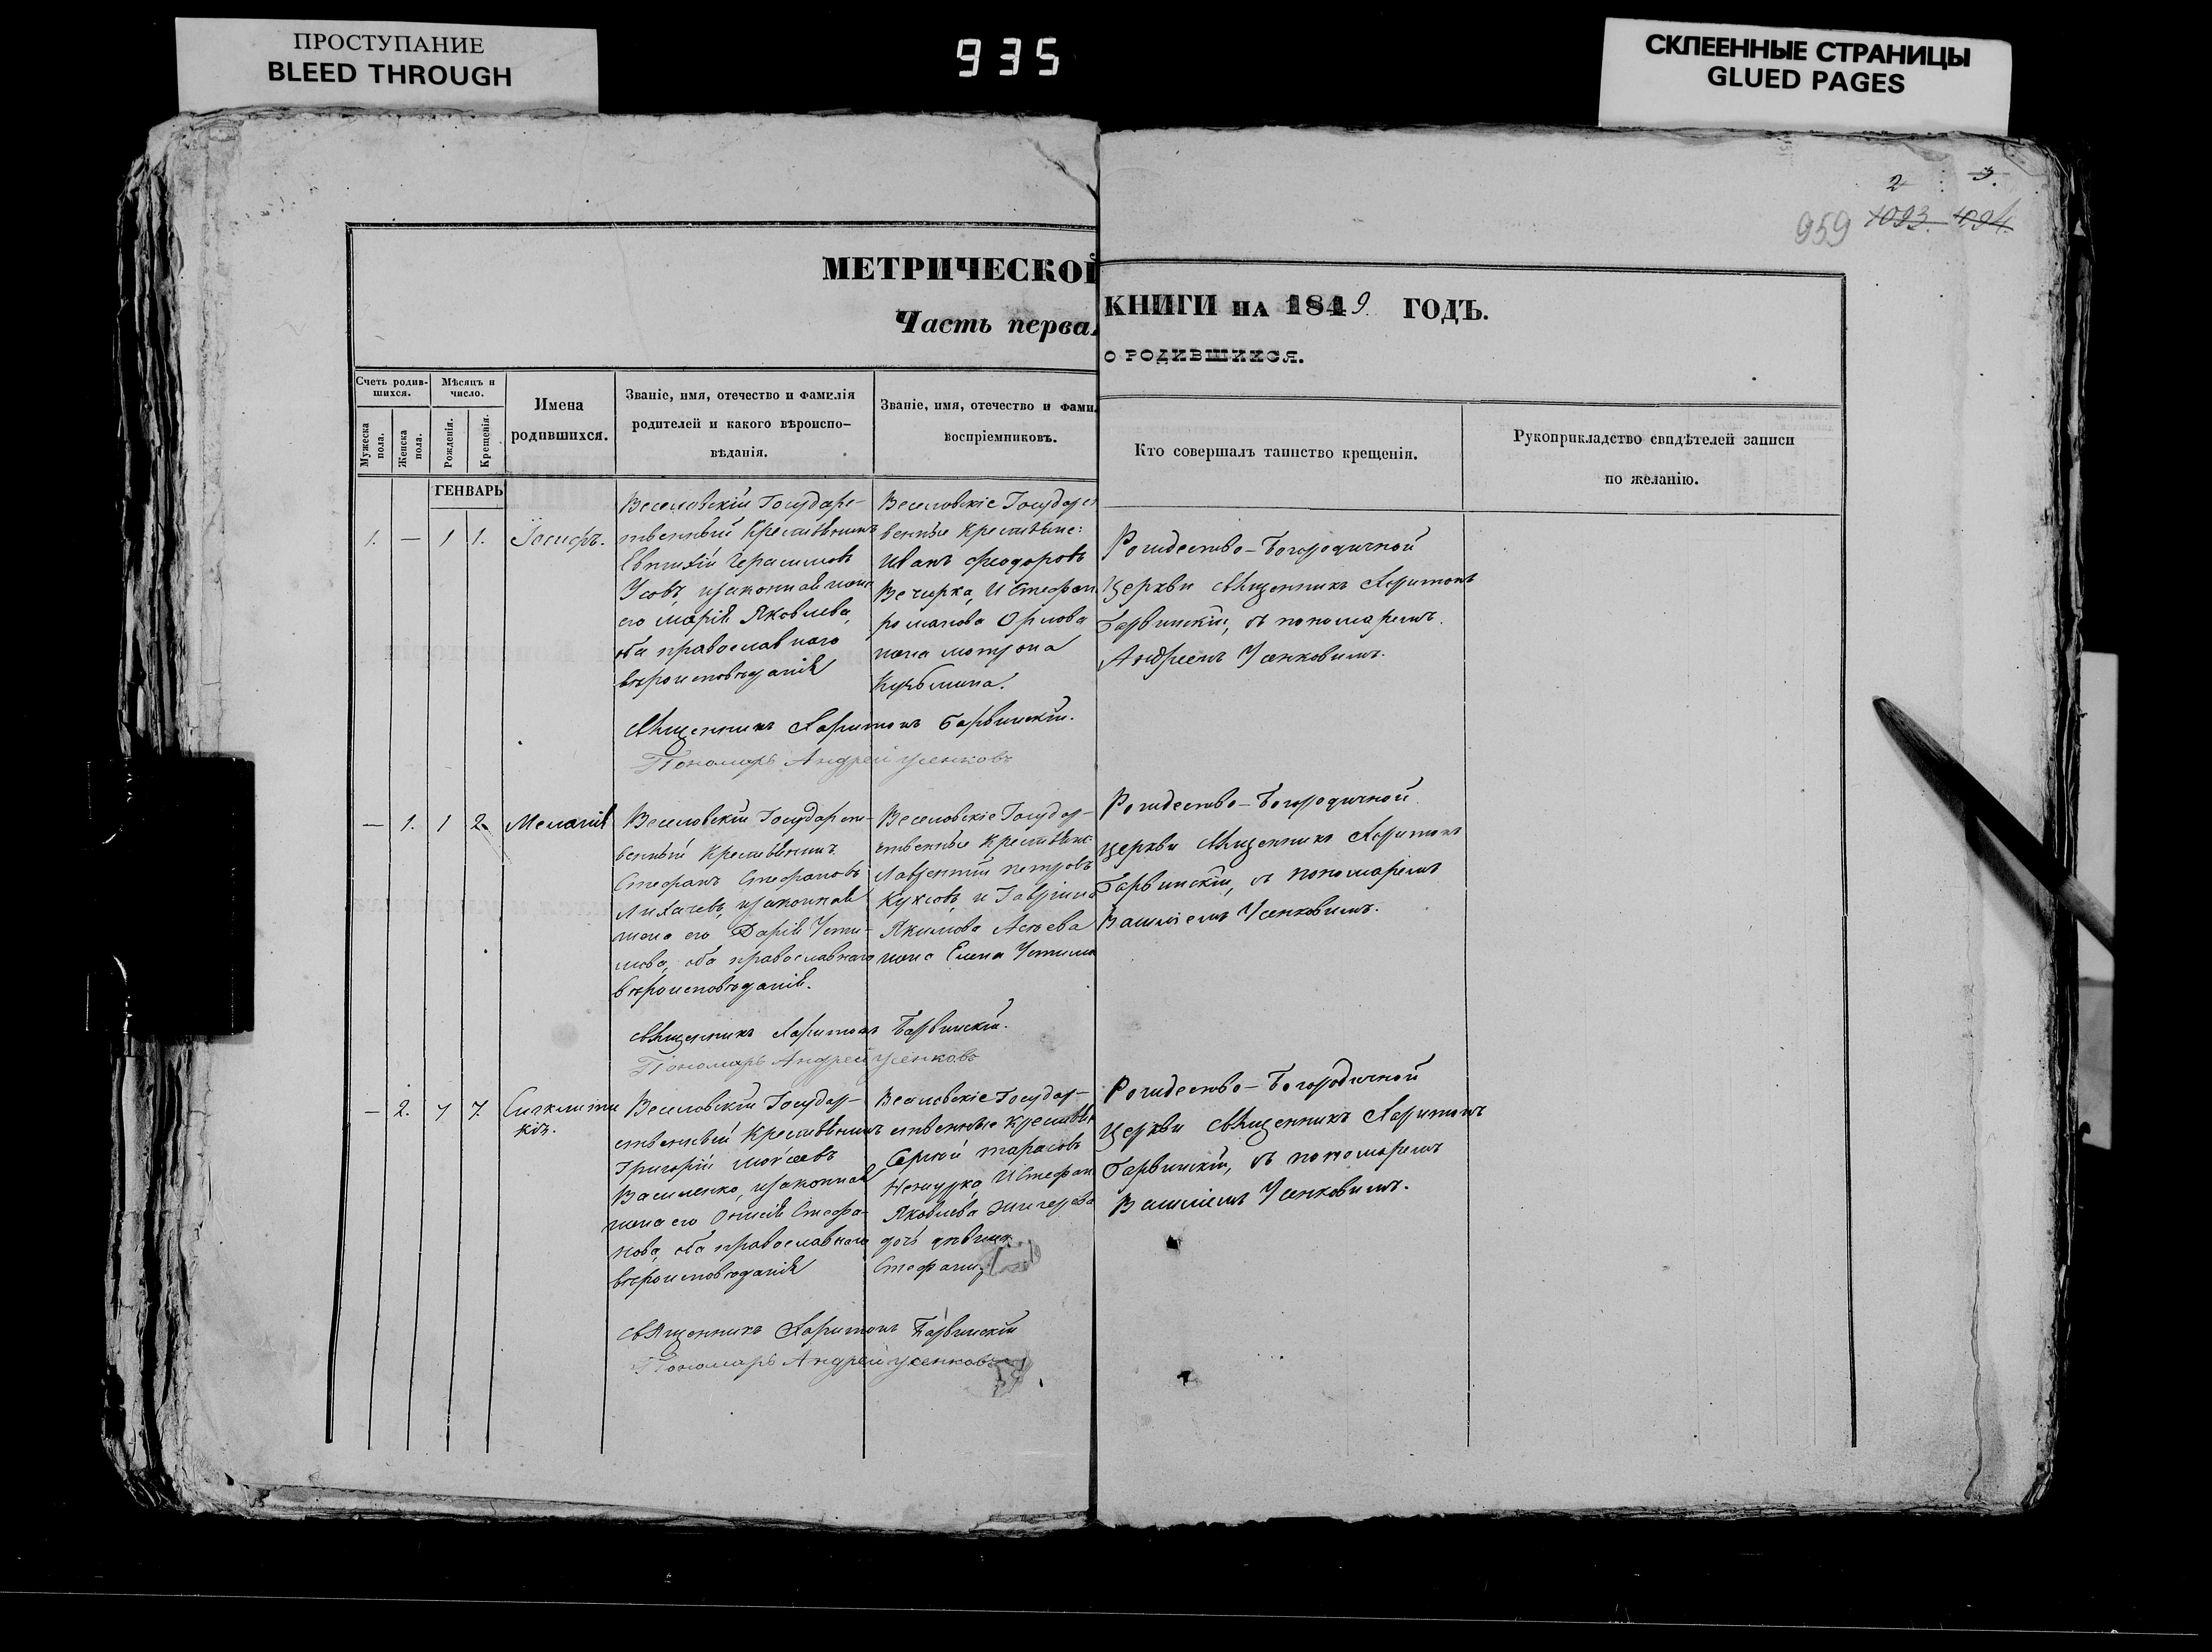 ПРОСТУПАНИЕ
BLEED THROUGH
935
СКЛЕЕННЫЕ СТРАНИЦЫ
GLUED PAGES
2 3.
959 1093. 1094.
МЕТРИЧЕСКОЙ
КНИГИ НА 1849. ГОДЪ.
Часть перва
О РОДИВШИХСЯ.
Счетъ родив-
шихся.
Мужеска
пола.
Женска
пола.
Мѣсяцъ и
число.
Рожденія.
Крещенія.
Имена
родившихся.
Званіе, имя, отечество и фамилія
родителей и какого вѣроиспо-
вѣданія.
Званіе, имя, отечество и фами
воспріемниковъ.
Кто совершалъ таинство крещенія.
Рукоприкладство свидѣтелей записи
по желанію.
ГЕНВАРЬ
1. — 1 1. Іосифъ.
Веселовскій Государс-
твенный Крестьянинъ
Евтихій Герасимовъ
Усовъ, и законная жена
его Марія Яковлева,
оба православнаго
вѣроисповѣданія
Веселовскіе Государст
венные Крестьяне:
Иванъ Феодоровъ
Вечирка, И Стефан
Романова Орлова
жена Мотрона
Кузьмина.
Рождество-Богородичной
Церкви Священникъ Харитонъ
Барвинскій, съ пономаремъ
Андреемъ Усенковымъ.
Священникъ Харитонъ Барвинскій.
Пономарь Андрей Усенковъ
— 1. 1 2. Меланія
Веселовскій Государст-
венный Крестьянинъ
Стефанъ Стефановъ
Лихачевъ, и законная
жена его Дарія Усти-
мова, оба православнаго
вѣроисповѣданія.
Веселовскіе Государ-
ственные Крестьяне
Лаврентій Петровъ
Куксовъ, и Гавріила
Якимова Асѣева
жена Елена Устимо
Рождество-Богородичной
церкви Священникъ Харитонъ
Барвинскій, съ пономаремъ
Василіемъ Усенковымъ.
Священникъ Харитонъ Барвинскій.
Пономарь Андрей Усенковъ
— 2. 7 7. Сигклити
кія.
Веселовскій Государ-
ственный Крестьянинъ
Григорій Моѵсеевъ
Василенко, и законная
жена его Онисія Стефа-
нова, оба православнаго
вѣроисповѣданія
Веселовскіе Государ-
ственные Крестьян
Сергій Тарасовъ
И Стефан
Яковлева
дочь дѣвица
Рождество-Богородичной
Церкви Священникъ Харитонъ
Барвинскій, съ пономаремъ
Василіемъ Усенковымъ.
Священникъ Харитонъ Барвинскій
Пономарь Андрей Усенковъ